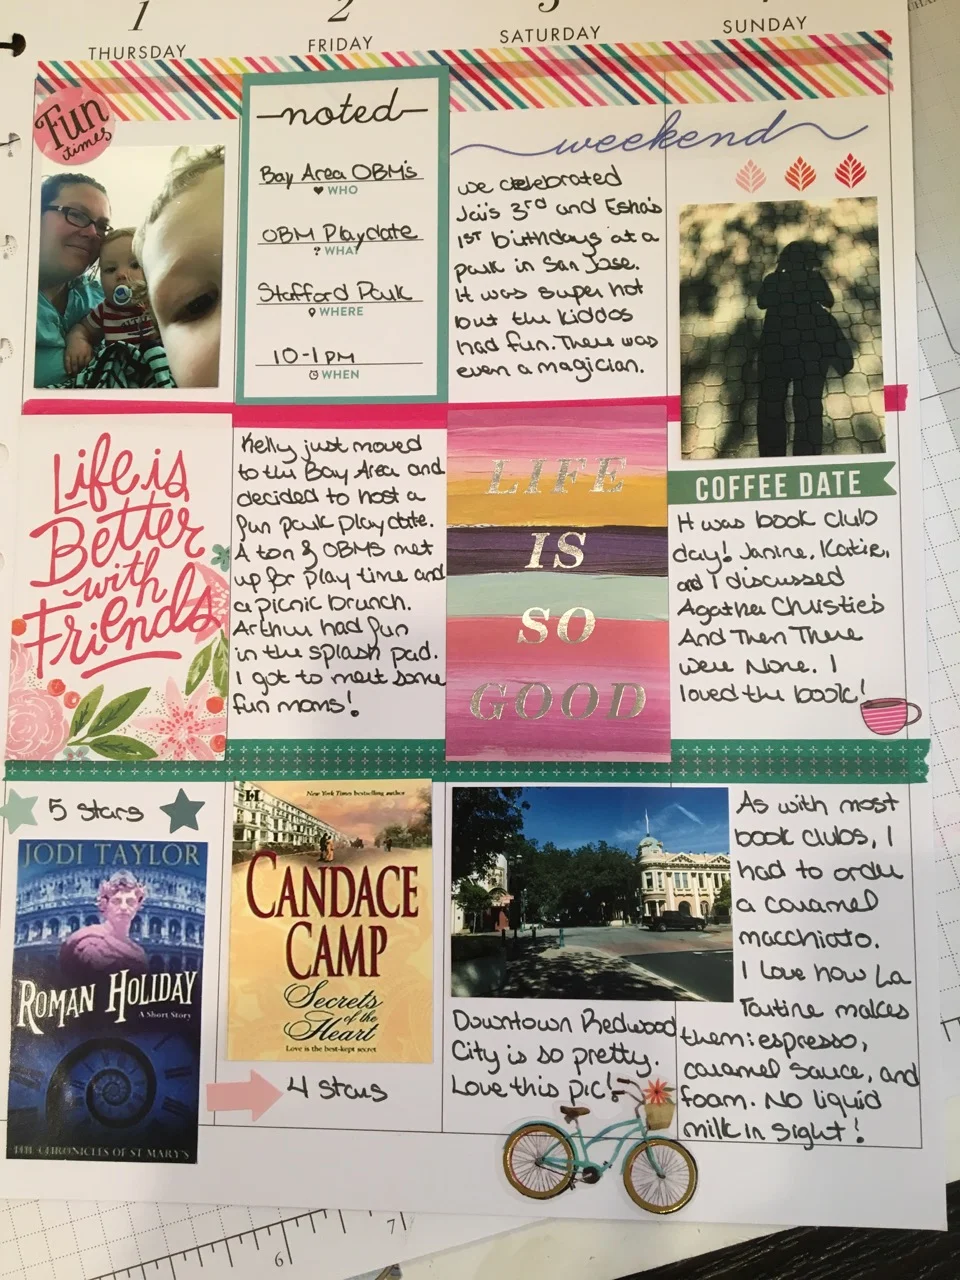 1
THURSDAY
2
FRIDAY
3
SATURDAY
4
SUNDAY
Fun
times
noted
Bay Area OBM's
WHO
OBM Playdate
? WHAT
Stafford Park
WHERE
10-1pm
WHEN
weekend
we celebrated
Jai's 3rd and Esha's
1st birthdays at a
park in San Jose.
It was super hot
but the kiddos
had fun. There was
even a magician.
Life is
Better
with
Friends
Kelly just moved
to the Bay Area and
decided to host a
fun park playdate.
A ton of OBMS met
up for play time and
a picnic brunch.
Arthur had fun
in the splash pad.
I got to meet some
fun moms!
LIFE
IS
SO
GOOD
COFFEE DATE
It was book club
day! Janine, Katie,
and I discussed
Agatha Christie's
And Then There
were None. I
loved the book!
5 stars
JODI TAYLOR
ROMAN HOLIDAY
A Short Story
THE CHRONICLES OF ST MARY'S
New York Times bestselling author
CANDACE
CAMP
Secrets
of the
Heart
Love is the best-kept secret
4 stars
Downtown Redwood
City is so pretty.
Love this pic!
As with most
book clubs, I
had to order
a caramel
macchiato.
I love how La
Tartine makes
them: espresso,
caramel sauce, and
foam. No liquid
milk in sight!
6
7